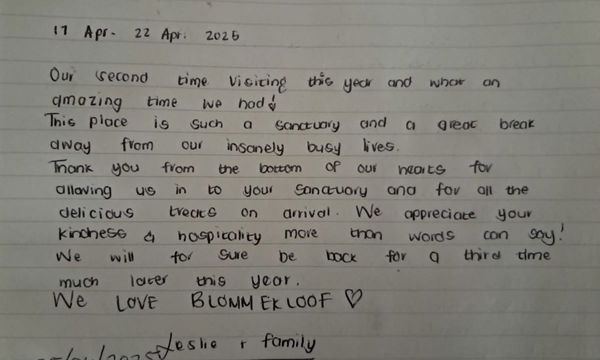 17 Apr- 22 Apr. 2025
Our second time visiting this year and what an
amazing time we had!
This place is such a sanctuary and a great break
away from our insanely busy lives.
Thank you from the bottom of our hearts for
allowing us in to your sanctuary and for all the
delicious treats on arrival. We appreciate your
kindness & hospitality more than words can say!
We will for sure be back for a third time
much later this year.
We LOVE BLOMMEKLOOF ♡
Leslie + family